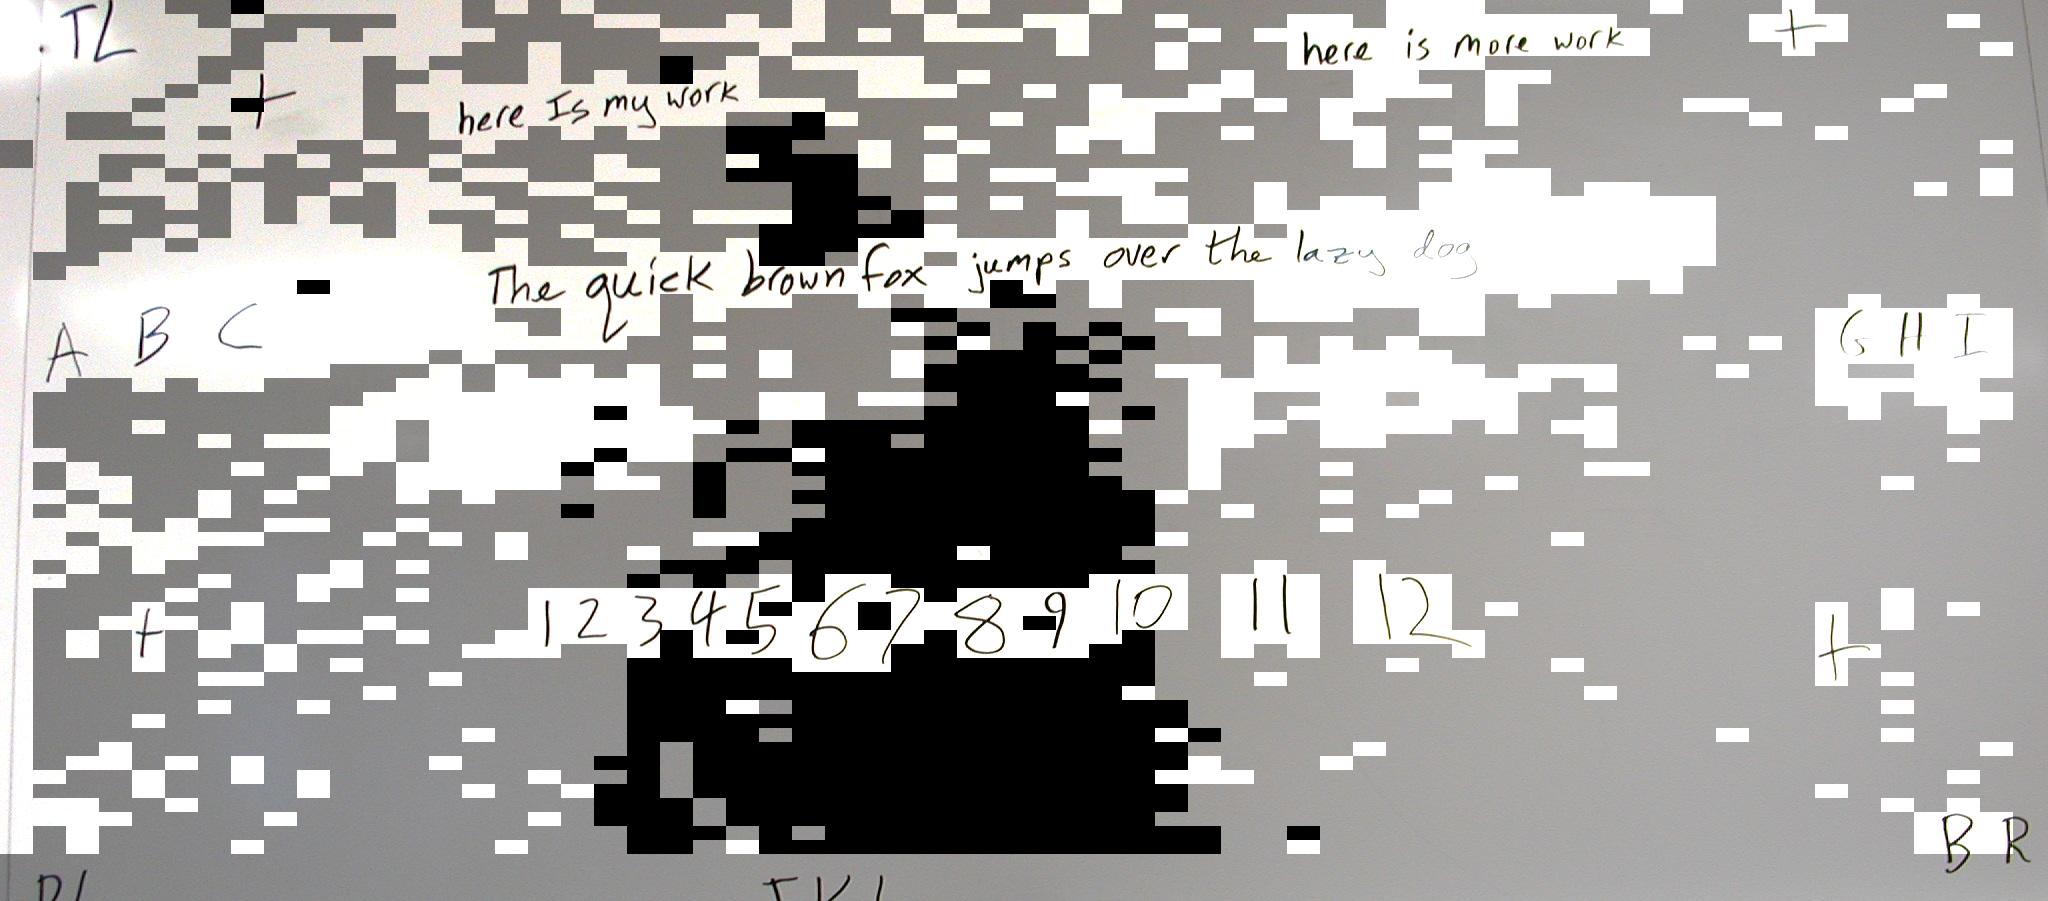 TL
here is more work
+
+
here Is my work
The quick brown fox jumps over the lazy dog
A B C
G H I
1 2 3 4 5 6 7 8 9 10 11 12
+
+
B R